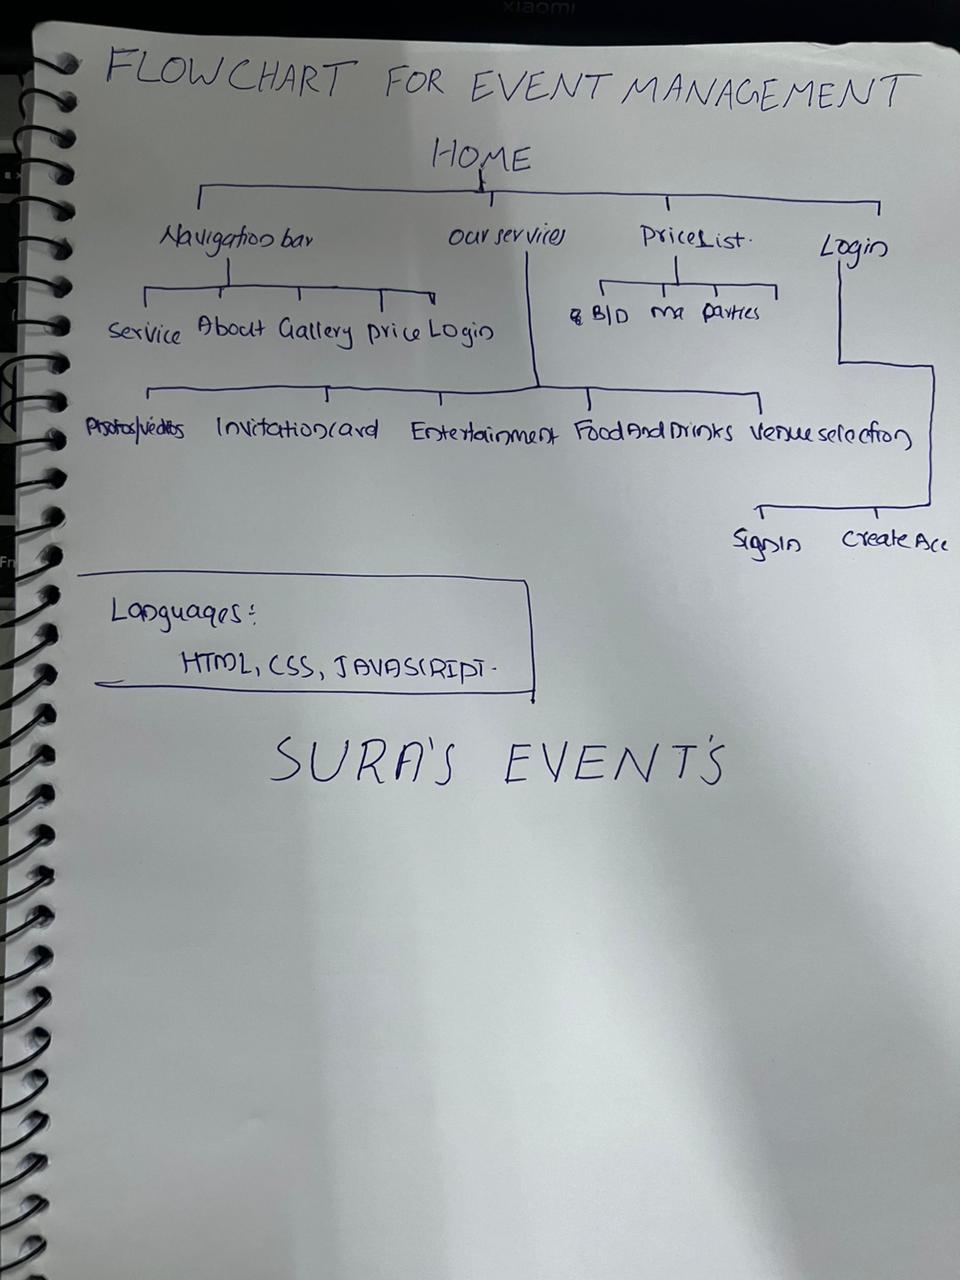 xiaomi
FLOWCHART FOR EVENT MANAGEMENT
HOME
Navigation bar
Our services
Price List.
Login
Service About Gallery price Login
B/D ma parties
Photos/videos Invitation card Entertainment Food And Drinks Venue selection
Sign In Create Acc
Languages:
HTML, CSS, JAVASCRIPT.
SURA'S EVENT'S
Fn